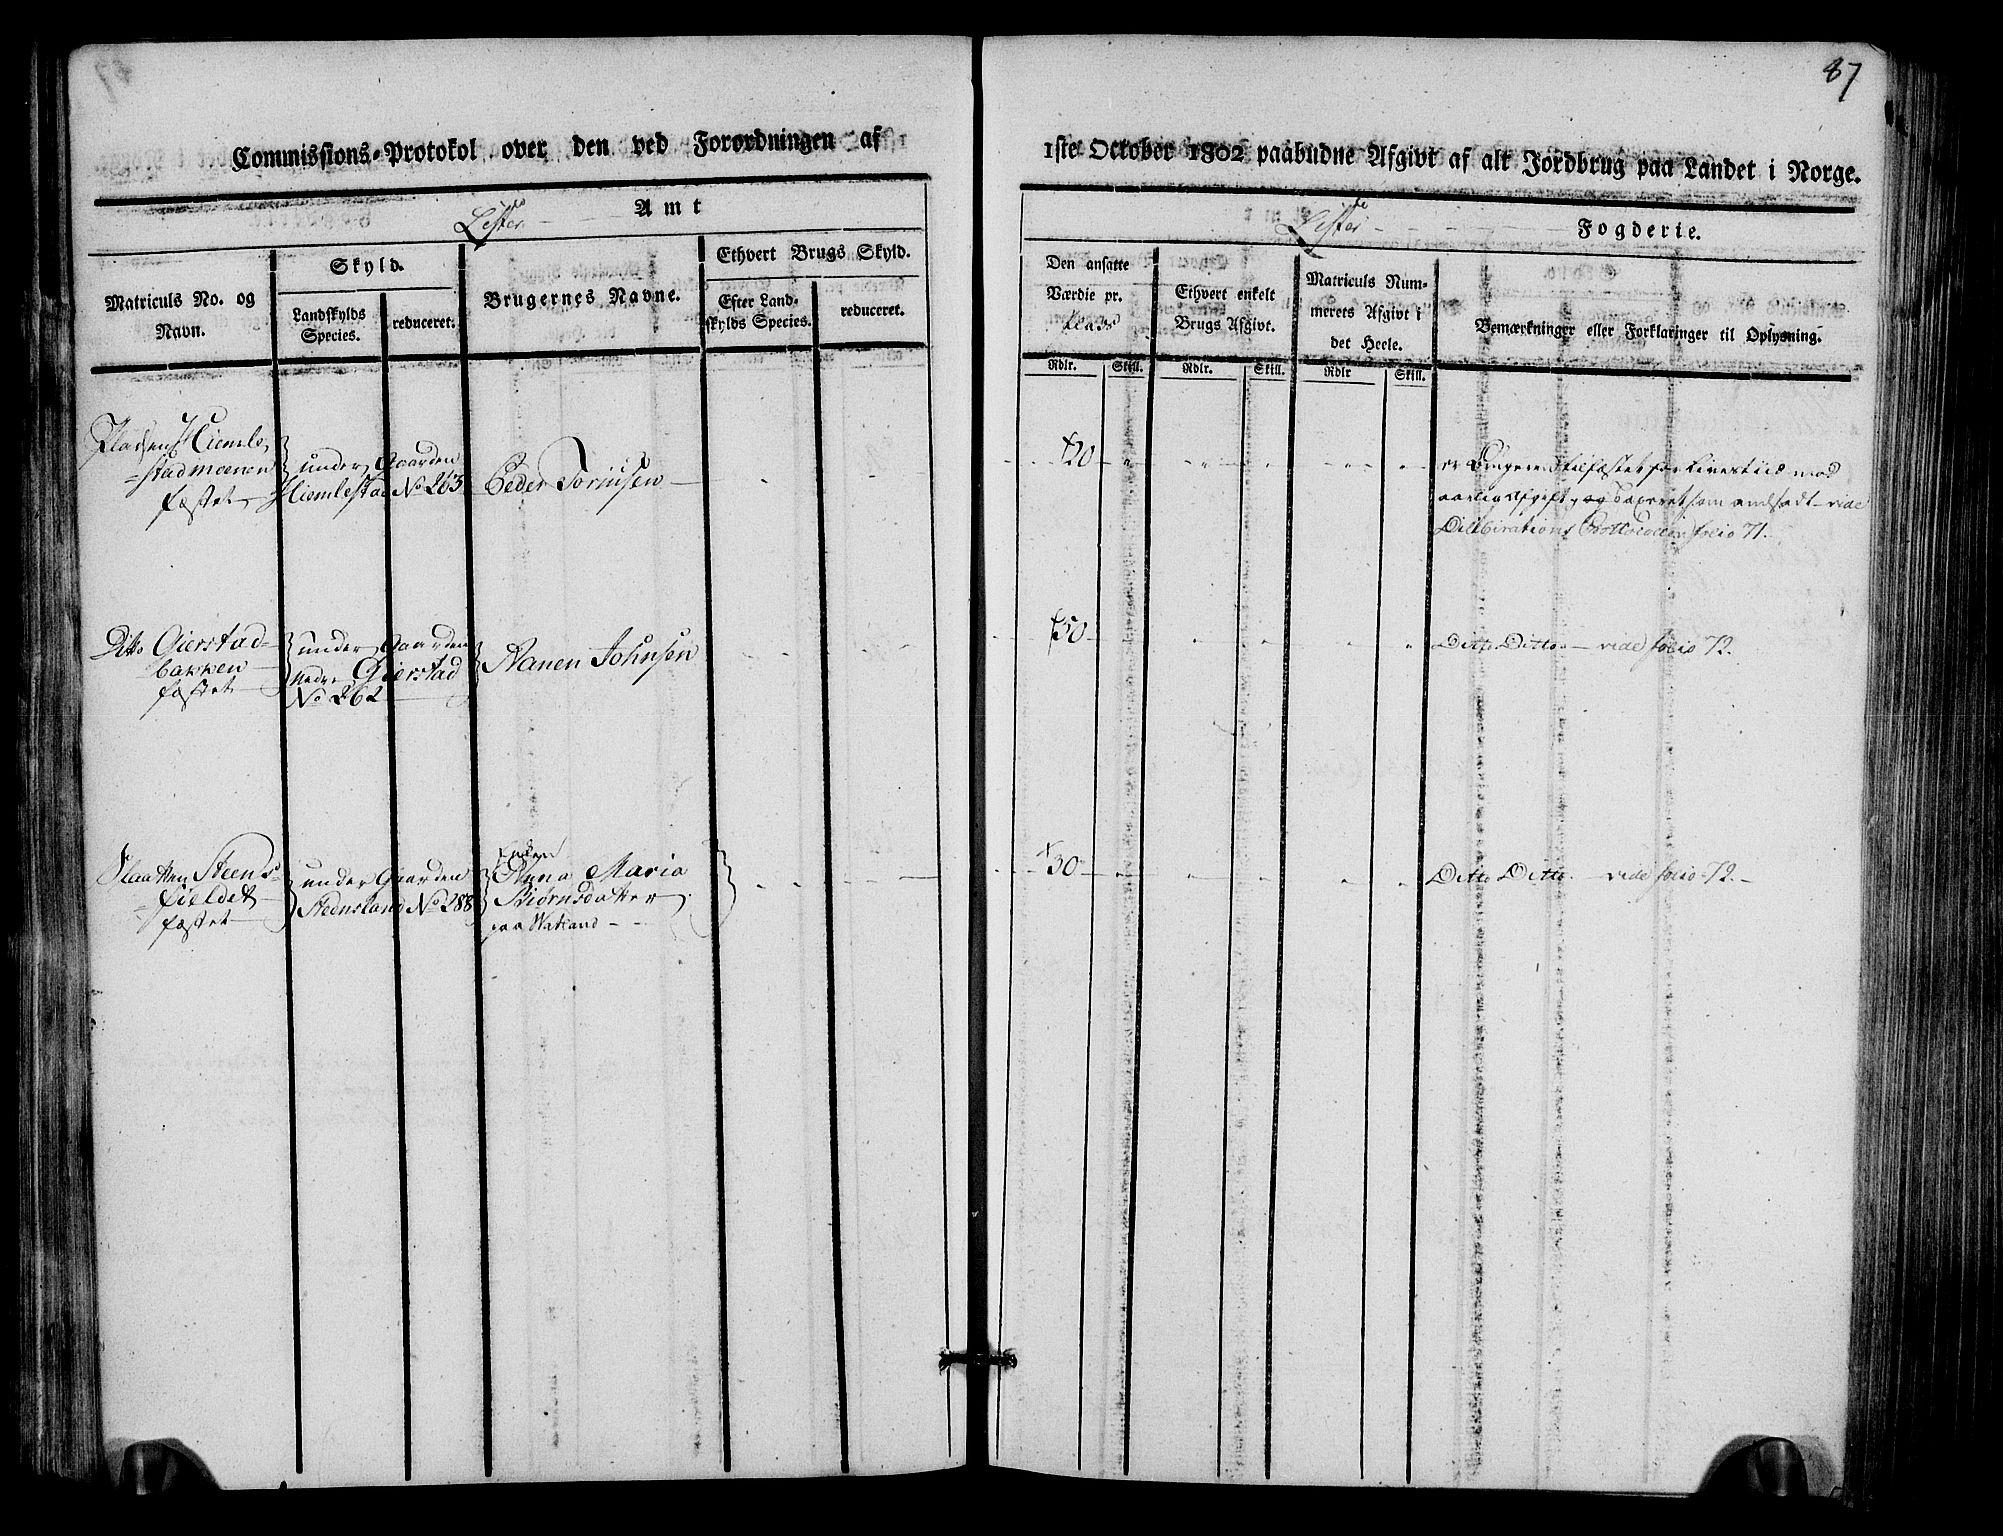 87
Commissions-Protokol over den ved Forordningen af
1ste October 1802 paabudne Afgivt af alt Jordbrug paa Landet i Norge.
Lister Amt
Lister Fogderie.
Matriculs No. og Navn.
Skyld.
Landskylds Species.
reduceret.
Brugernes Navne.
Ethvert Brugs Skyld.
Efter Landskylds Species.
reduceret.
Den ansatte
Værdie pr.
Plads
Ethvert enkelt
Brugs Afgivt.
Matriculs Num-
merets Afgivt i
det Heele.
Bemærkninger eller Forklaringer til Oplysning.
Rdlr. Skill. Rdlr. Skill. Rdlr Skill.
Pladsen Hiemle-
stadmoenen
fæstet
under Gaarden
Hiemlestad No 265
Peder Torjusen
20
er Brugeren tilfæstet for Livestiid mod
aarlig Afgift, og Taxeret som andsadt vide
Dilibirations Prottocollen folio 71.
Ditto Gierstad-
bakken
fæstet
under Gaarden
Nedre Gierstad
No 262
Aanen Johnsen
50
Ditto Ditto vide folio 72.
Slaatten Steens-
fieldet
fæstet
under Gaarden
Stednsland No 288
Enken
Anna Maria
Biørnsdatter
paa Watland
30
Ditto Ditto vide folio 72.